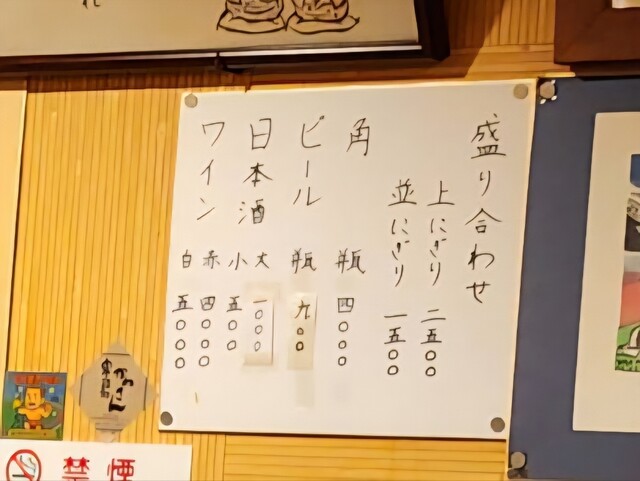 盛り合わせ
上にぎり 二五〇〇
並にぎり 一五〇〇
角 瓶 四〇〇〇
ビール 瓶 九〇〇
日本酒 大 一〇〇〇
小 五〇〇
ワイン 赤 四〇〇〇
白 五〇〇〇
れ
禁煙